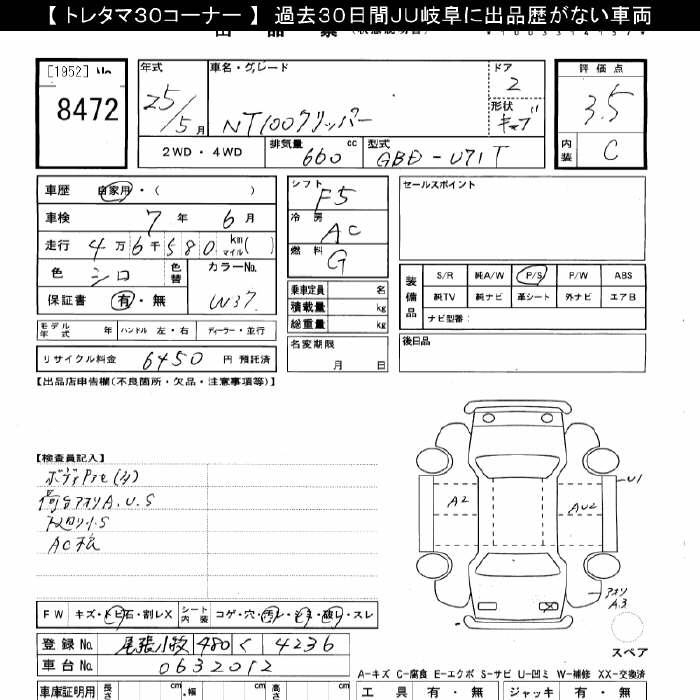 【 トレタマ30コーナー 】 過去30日間JU岐阜に出品歴がない車両
[1952] No.
8472
年式
25/5月
車名・グレード
NT100クリッパー
ドア
2
形状
キャブ
評価点
3.5
内装
C
2WD ・ 4WD
排気量
660 cc
型式
GBD-U71T
車歴 自家用・( )
車検 7年 6月
走行 4万6千580 km マイル( )
色 シロ 色替
カラーNo.
W37
保証書 有・無
モデル年式 年 ハンドル 左・右 ディーラー・並行
リサイクル料金 6450 円 預託済
シフト
F5
冷房
AC
燃料
G
乗車定員 名
積載量 kg
総重量 kg
名変期限
月 日
セールスポイント
装備品
S/R 純A/W P/S P/W ABS
純TV 純ナビ 革シート 外ナビ エアB
ナビ型番:
後日品
【出品店申告欄(不良箇所・欠品・注意事項等)】
【検査員記入】
荷台アオリA.U.S
下回り小S
FW キズ・トビ石・割レX シート内装 コゲ・穴・汚レ・シミ・破レ・スレ
登録No. 尾張小牧 480 く 4236
車台No. 0632012
車庫証明用 長さ cm 幅 cm 高さ cm
A2
AU2
U1
アオリ
A3
スペア
A-キズ C-腐食 E-エクボ S-サビ U-凹ミ W-補修 XX-交換済
工具 有・無 ジャッキ 有・無